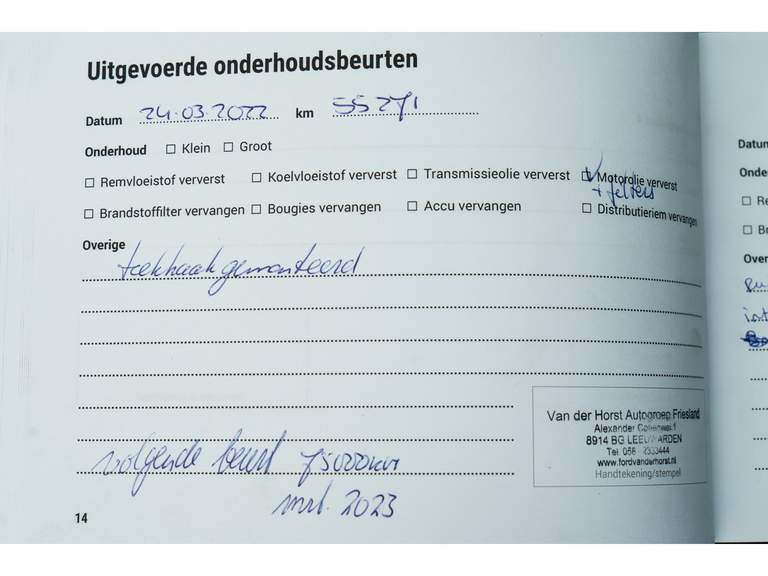 Uitgevoerde onderhoudsbeurten
Datum 24.03.2022 km 55271
Onderhoud ☐ Klein ☐ Groot
☐ Remvloeistof ververst ☐ Koelvloeistof ververst ☐ Transmissieolie ververst ☑ Motorolie ververst
☐ Brandstoffilter vervangen ☐ Bougies vervangen ☐ Accu vervangen ☐ Distributieriem vervangen
Overige
trekhaak gemonteerd
volgende beurt 75000km
mrt. 2023
Van der Horst Autogroep Friesland
Alexander
8914 BG LEEUWARDEN
Tel. 058
www.fordvanderhorst.nl
Handtekening/stempel
14
Datum
Onde
Re
B
Over